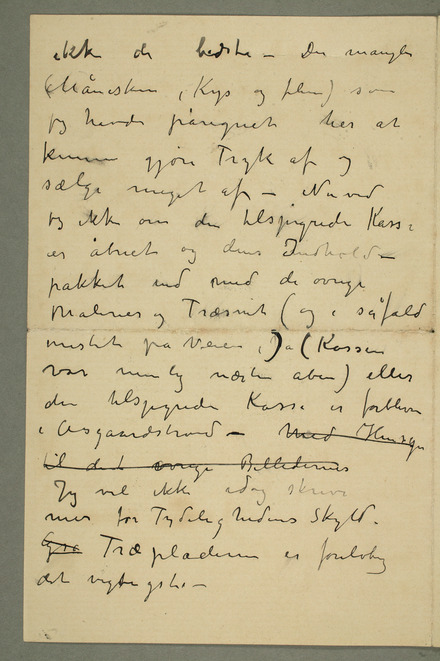 ikke de bedste — Der mangler
(Måneskin, Kys og flere) som
jeg havde påregnet her at
kunne gjøre Tryk af og
sælge meget af — Nu ved
jeg ikke om den tilspigrede Kasse
er åbnet og dens Indhold —
pakket ind med de øvrige
Malerier og Træsnit (og i så fald
mistet på Veien,) (Kassen
var nemlig næsten aben) eller
den tilspigrede Kasse er forbleven
i Aasgaardstrand — Med Hensyn
til det øvrige Billedernes
Jeg vil ikke idag skrive
mer for Tydelighedens Skyld.
Træpladerne er foreløbig
det vigtigste —